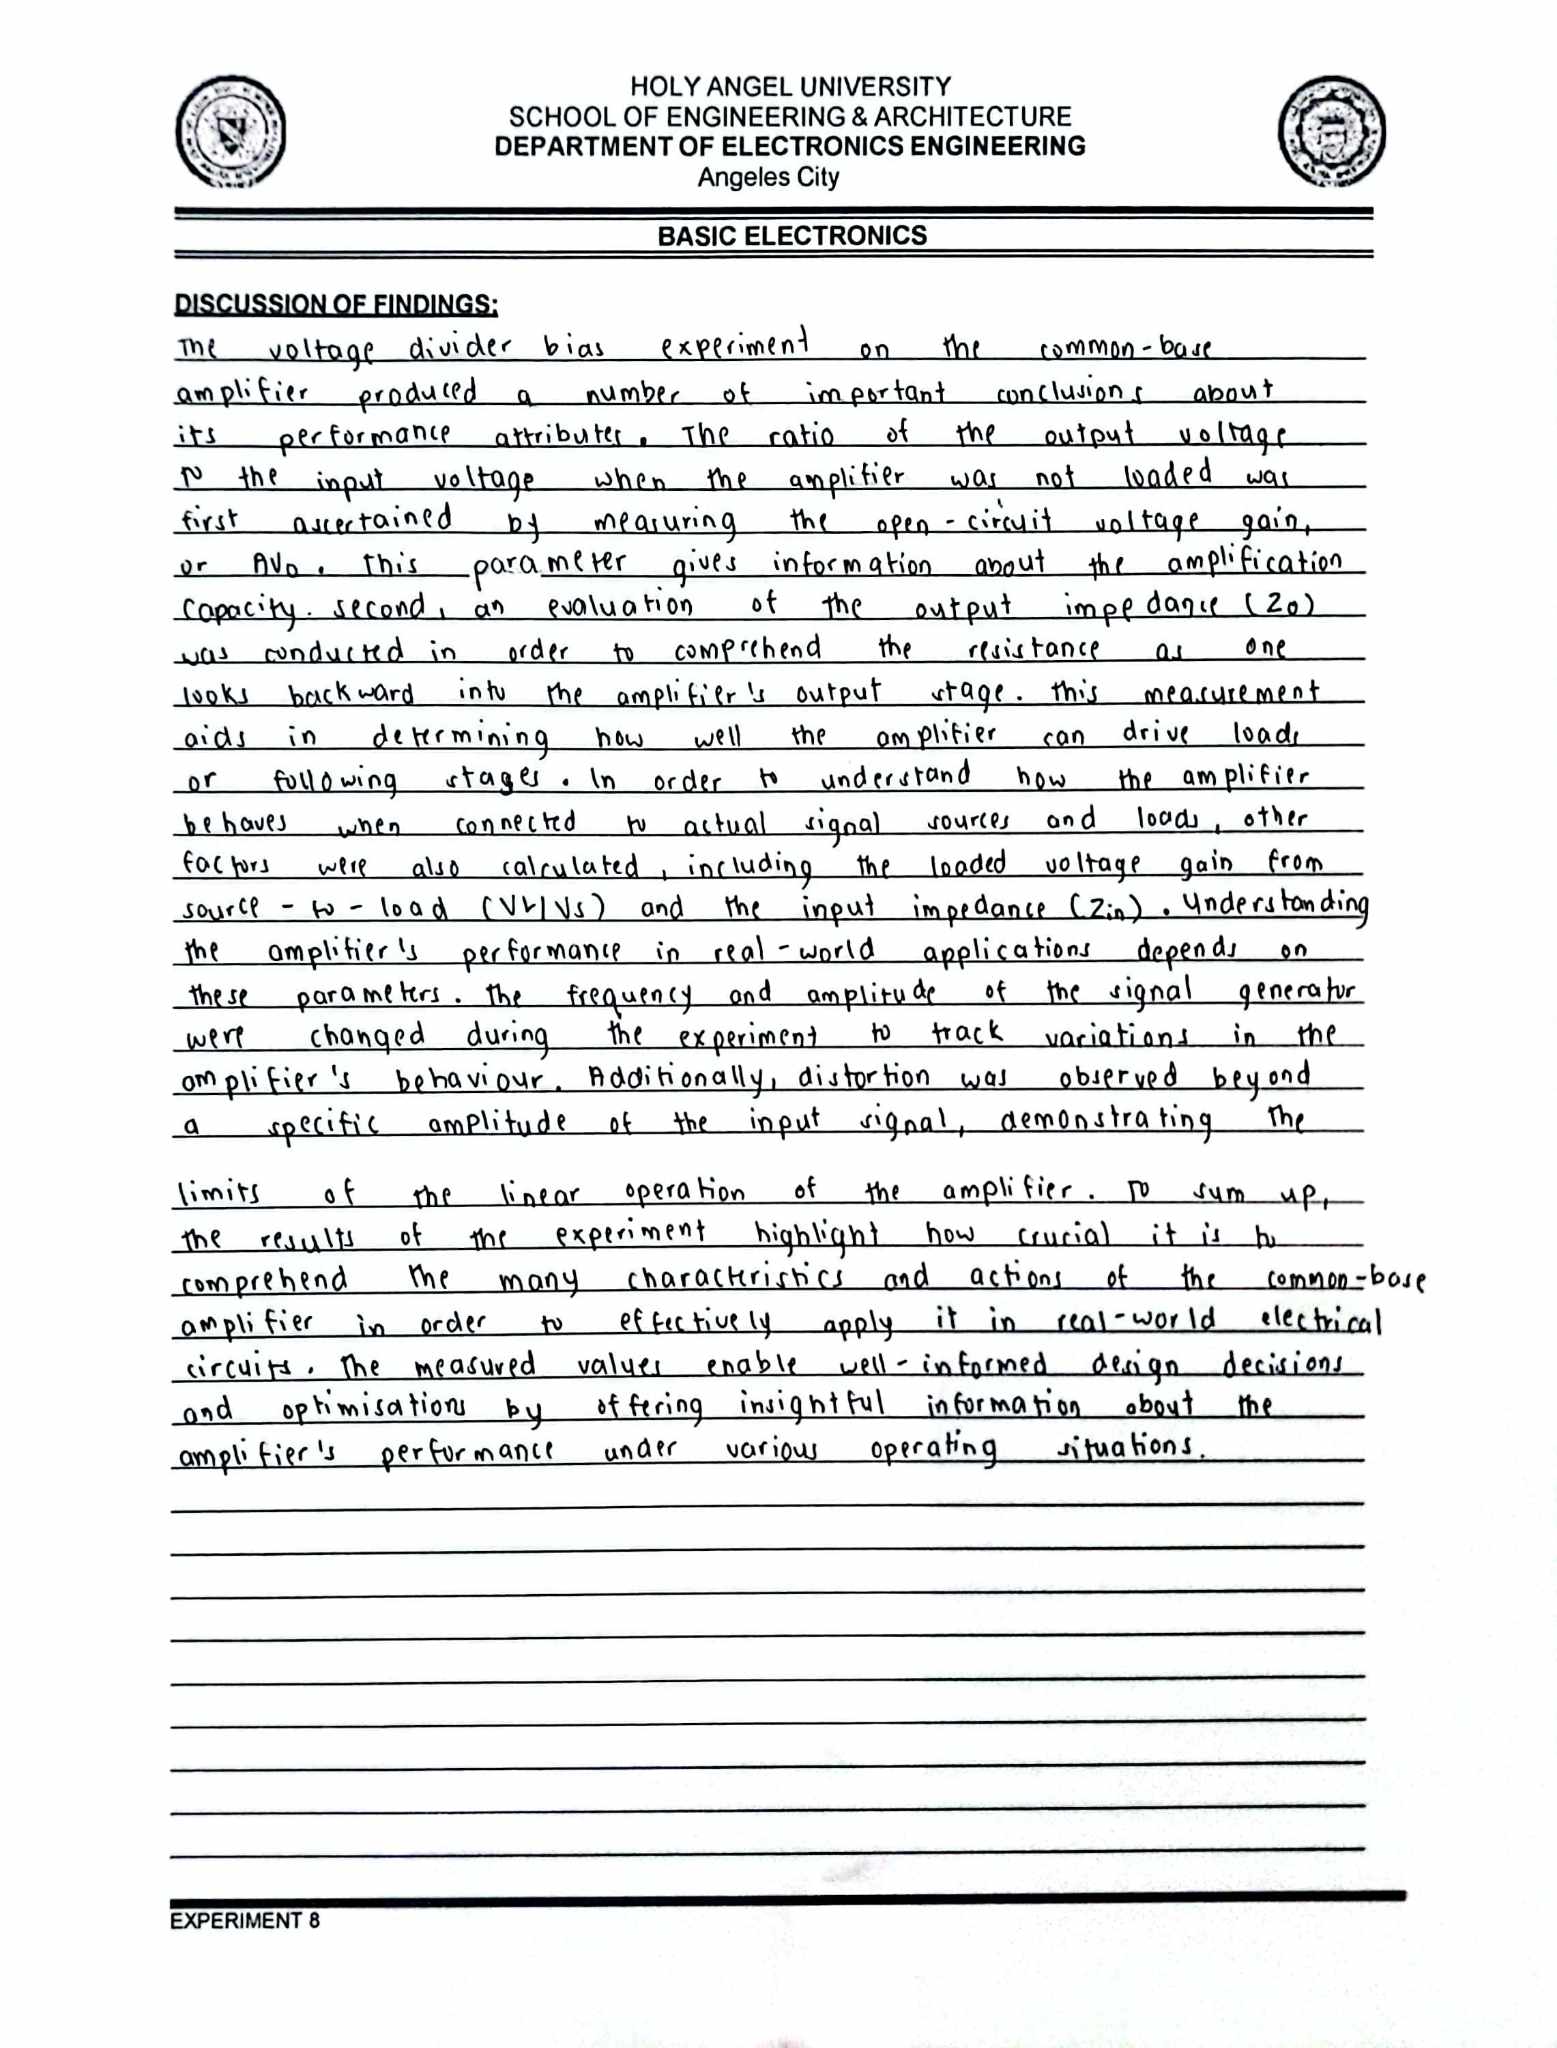 HOLY ANGEL UNIVERSITY
SCHOOL OF ENGINEERING & ARCHITECTURE
DEPARTMENT OF ELECTRONICS ENGINEERING
Angeles City
BASIC ELECTRONICS
DISCUSSION OF FINDINGS:
The voltage divider bias experiment on the common-base
amplifier produced a number of important conclusions about
its performance attributes. The ratio of the output voltage
to the input voltage when the amplifier was not loaded was
first ascertained by measuring the open-circuit voltage gain,
or AVo. This parameter gives information about the amplification
capacity. Second, an evaluation of the output impedance (Zo)
was conducted in order to comprehend the resistance as one
looks backward into the amplifier's output stage. This measurement
aids in determining how well the amplifier can drive loads
or following stages. In order to understand how the amplifier
behaves when connected to actual signal sources and loads, other
factors were also calculated, including the loaded voltage gain from
source-to-load (VL/Vs) and the input impedance (Zin). Understanding
the amplifier's performance in real-world applications depends on
these parameters. The frequency and amplitude of the signal generator
were changed during the experiment to track variations in the
amplifier's behaviour. Additionally, distortion was observed beyond
a specific amplitude of the input signal, demonstrating the
limits of the linear operation of the amplifier. To sum up,
the results of the experiment highlight how crucial it is to
comprehend the many characteristics and actions of the common-base
amplifier in order to effectively apply it in real-world electrical
circuits. The measured values enable well-informed design decisions
and optimisations by offering insightful information about the
amplifier's performance under various operating situations.
EXPERIMENT 8